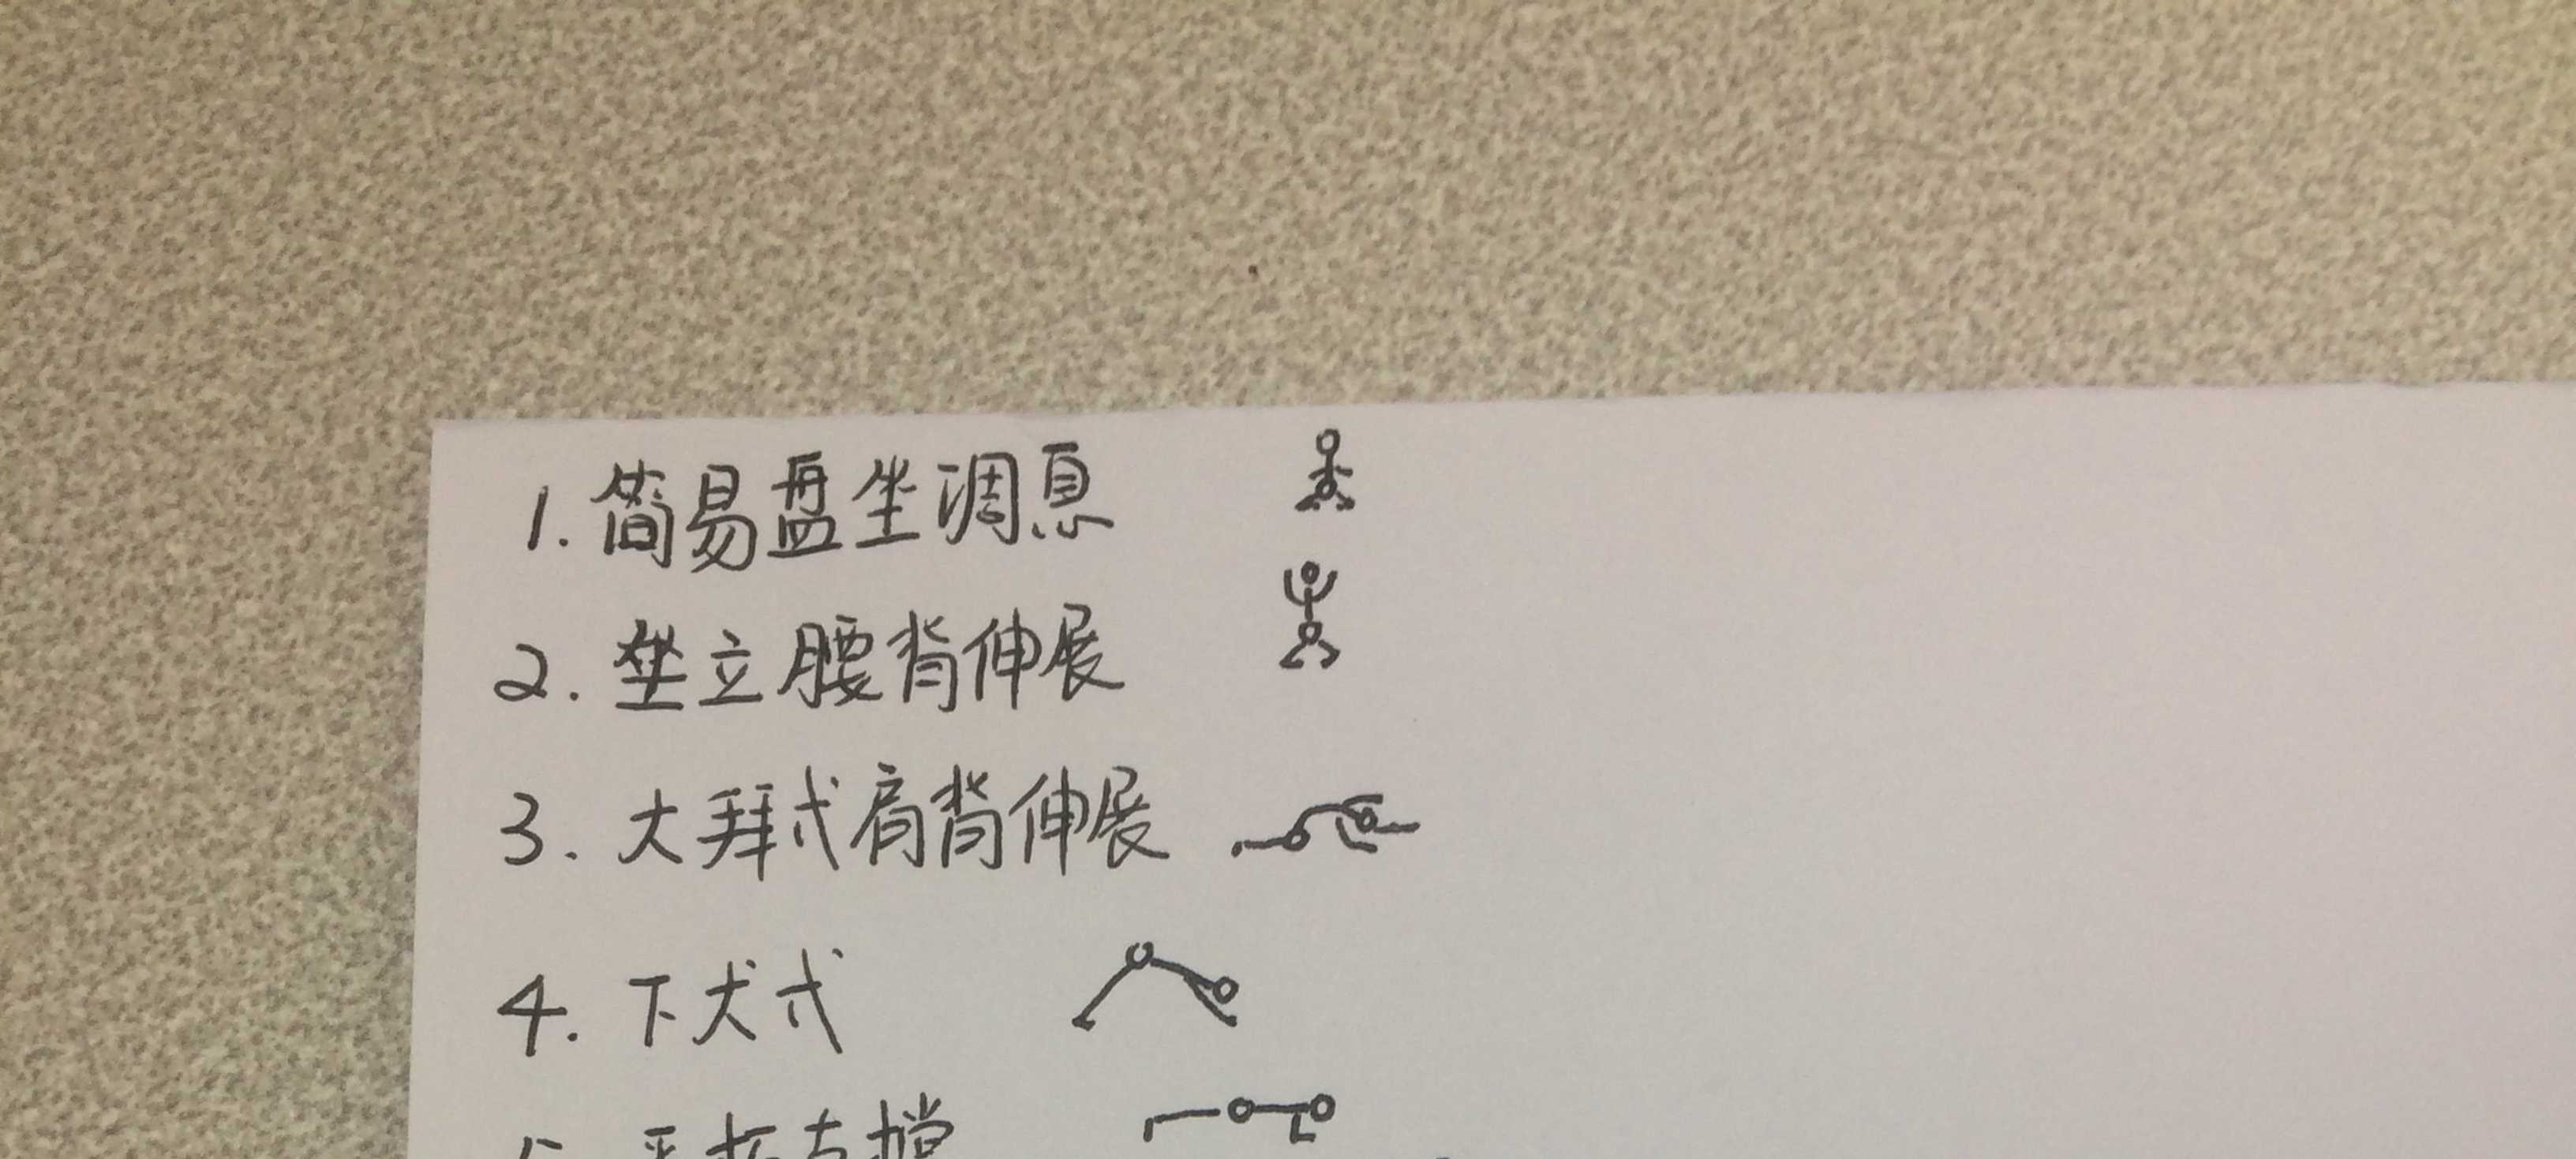 1. 简易盘坐调息
2. 坐立腰背伸展
3. 大拜式肩背伸展
4. 下犬式
5. 平板支撑